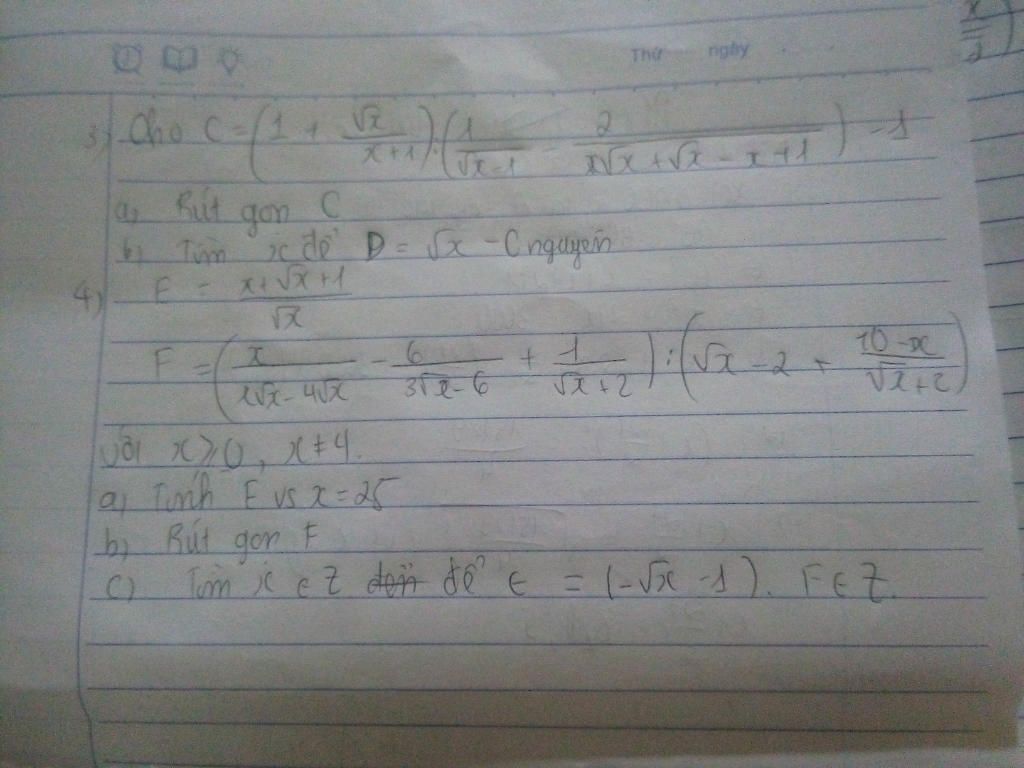 Thứ ngày
x/2)
3) Cho C = (1 + √x/(x+1)) : (1/(√x-1) - 2/(x√x + √x - x + 1)) - 1
a, Rút gọn C
b) Tìm x để D = √x - C nguyên
4) E = (x+√x+1)/√x
F = (x/(x√x - 4√x) - 6/(3√x - 6) + 1/(√x + 2)) : (√x - 2 + (10-x)/(√x+2))
với x ≥ 0, x ≠ 4.
a) Tính E vs x = 25
b) Rút gọn F
c) Tìm x ∈ Z để E = (-√x - 1). F ∈ Z.